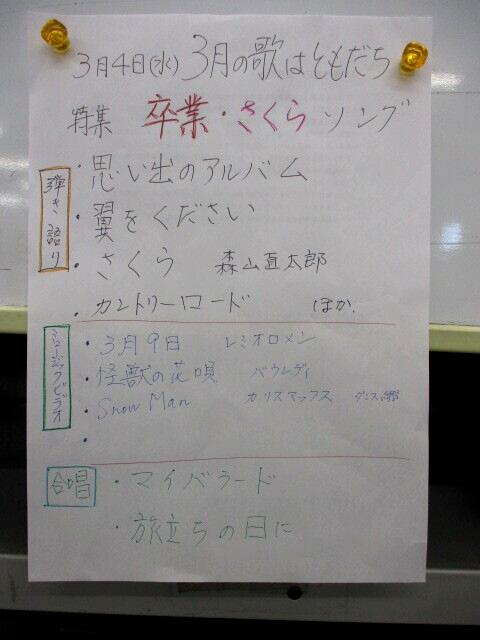 3月4日(水) 3月の歌はともだち
特集 卒業・さくらソング
弾き語り
・思い出のアルバム
・翼をください
・さくら 森山直太郎
・カントリーロード ほか.
ミュージックビデオ
・3月9日 レミオロメン
・怪獣の花唄 バウンディ
・Snow Man カリスマックス
・
合唱
・マイバラード
・旅立ちの日に